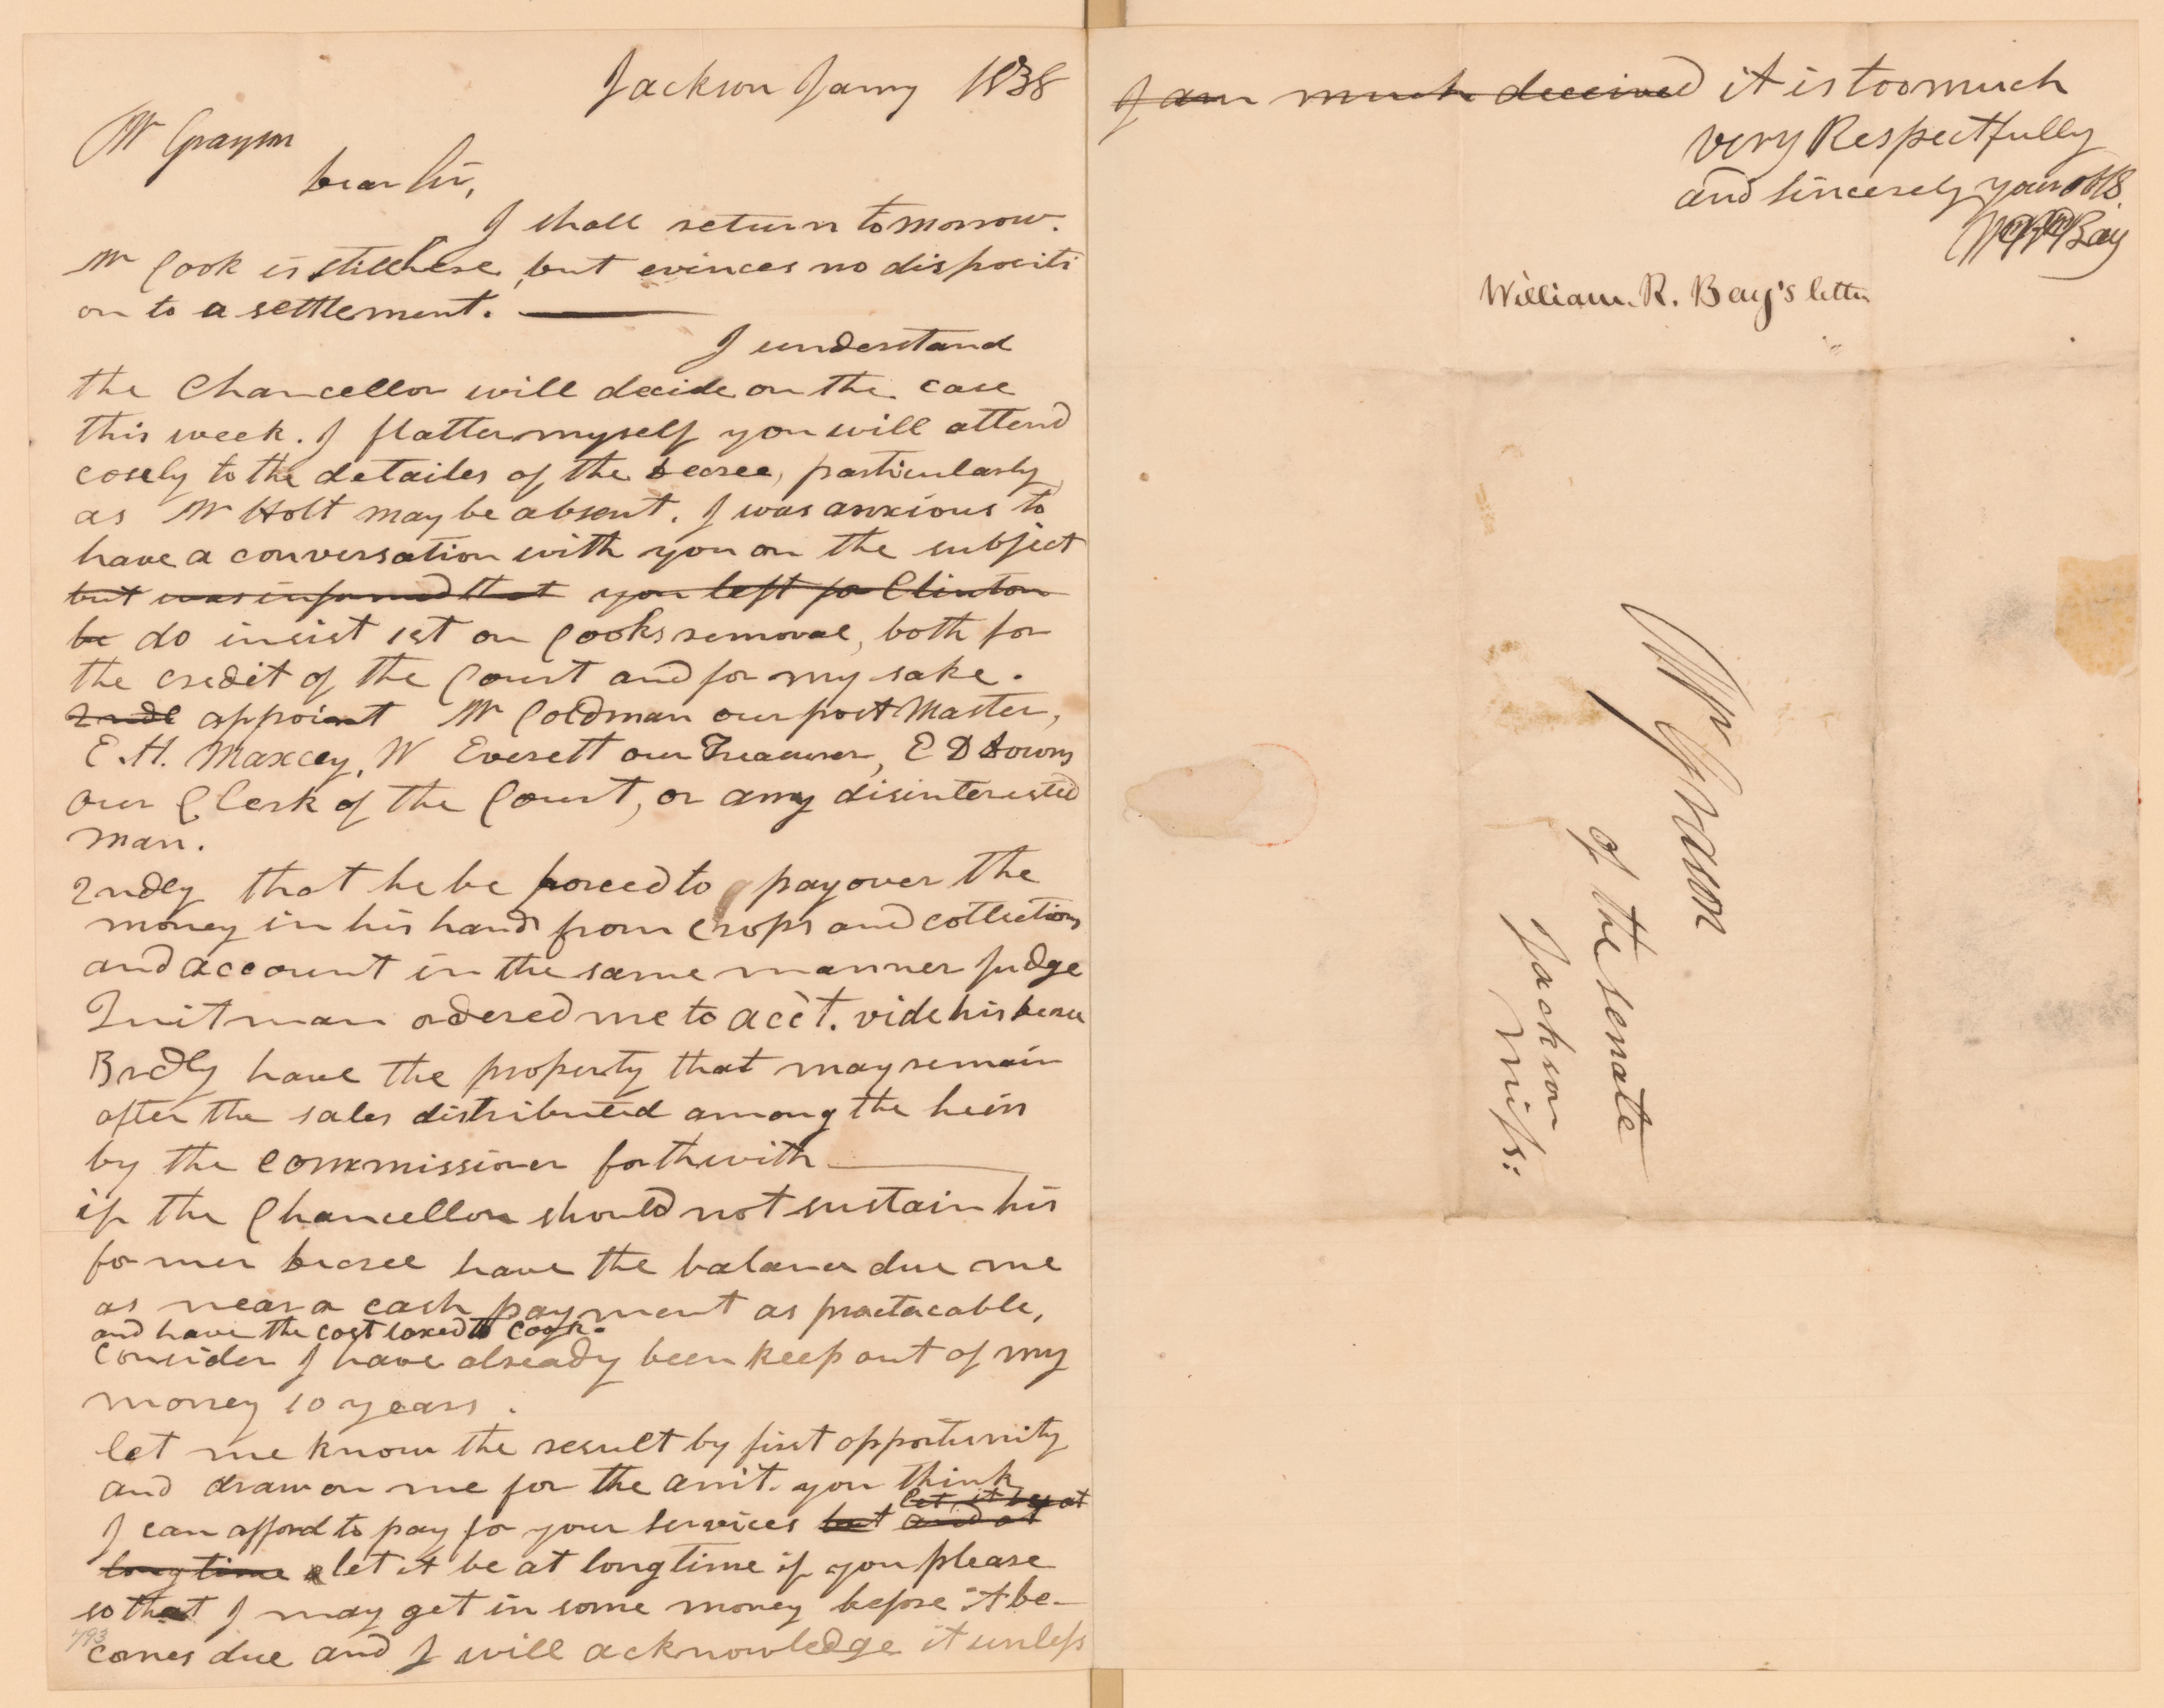 Jackson Jany 1838
Mr Grayson
Dear Sir,
I shall return tomorrow.
Mr Cook is still here, but evinces no dispositi
on to a settlement.
I understand
the Chancellor will decide on the case
this week. I flatter myself you will attend
cosely to the detailes of the Decree, particularly
as Mr Holt may be absent. I was anxious to
have a conversation with you on the subject
but was informed that you left for Clinton
be do insist 1st on Cooks removal, both for
the credit of the Court and for my sake.
2ndl appoint Mr Coldman our post Master,
E. H. Maxcey, W Everett our Treasurer, E D Downs
our Clerk of the Court, or any disinterested
man.
2ndly that he be forced to pay over the
money in his hands from crops and collections
and account in the same manner Judge
Quitman ordered me to acct. vide his Decree
3rdly have the property that may remain
after the sales distributed among the heirs
by the commissioner forthwith
if the Chancellor should not sustain his
former Decree have the balance due me
as near a cash payment as practacable,
and have the cost taxed to Cook.
consider I have already been keep out of my
money 10 years.
let me know the result by first opportunity
and draw on me for the amt. you think
let it be at
I can afford to pay for your services but and at
long time let it be at long time if you please
so that I may get in some money before it be-
comes due and I will acknowledge it unless
793
I am much deceived it is too much
very Respectfully
and sincerely your obt S.
Wm R Bay
William. R. Bay's letter
Mr Grason
of the Senate
Jackson
Miss: